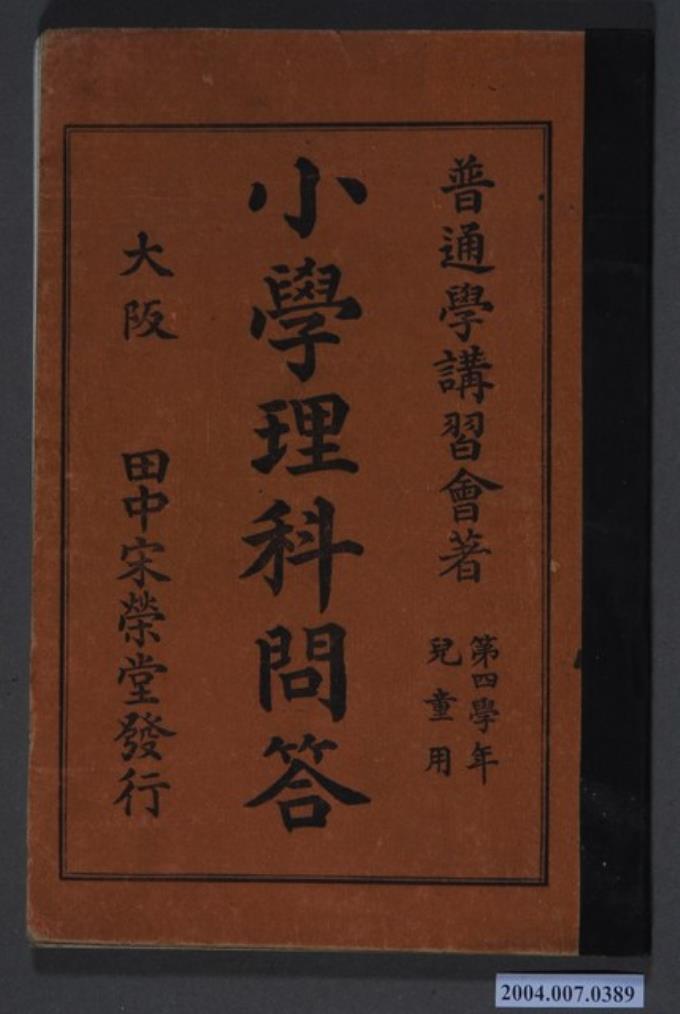 普通學講習會著
第四學年
兒童用
小學理科問答
大阪 田中宋榮堂發行
2004.007.0389